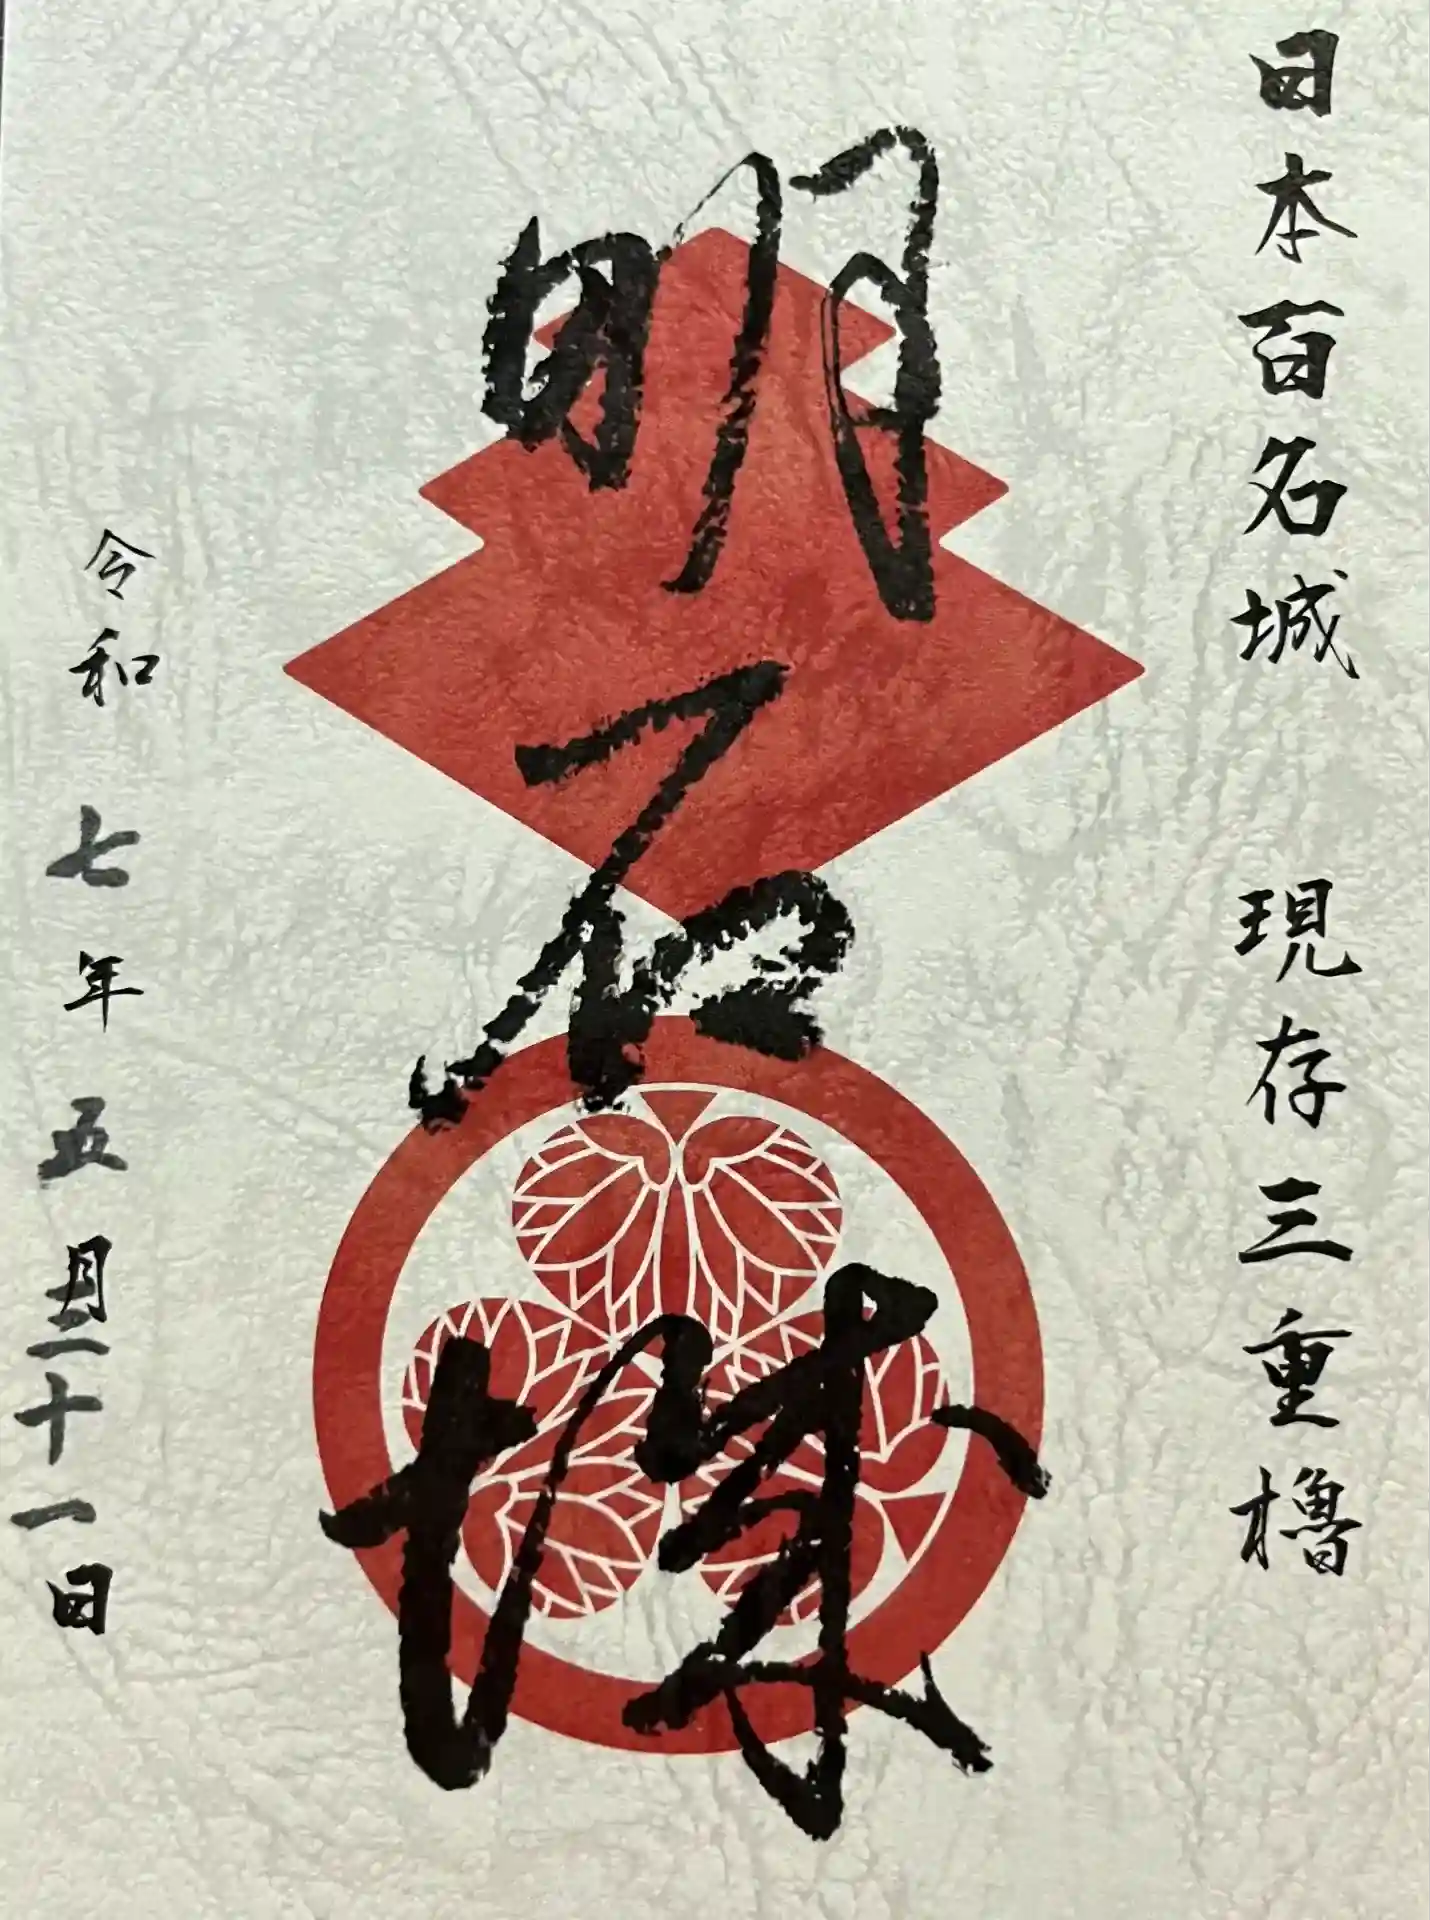 日本百名城　現存三重櫓
明石城
令和七年五月二十一日